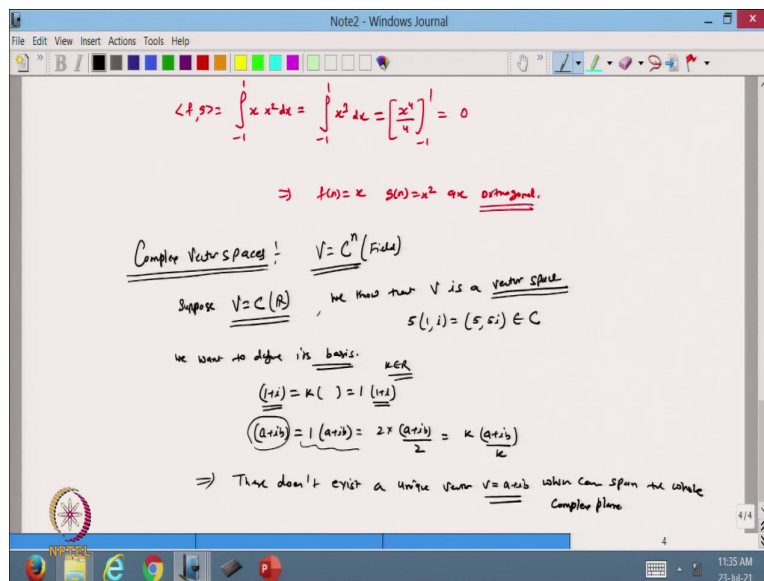 Note2 - Windows Journal
File Edit View Insert Actions Tools Help
<f,g> = ∫₋₁¹ x x² dx = ∫₋₁¹ x³ dx = [x⁴/4]₋₁¹ = 0
⇒ f(n)=x g(n)=x² are orthogonal.
Complex Vector spaces: V=Cⁿ (Field)
Suppose V=C(R), we know that V is a vector space
5(1,i) = (5,5i) ∈ C
we want to define its basis.
K∈R
(1+i) = K( ) = 1 (1+i)
(a+ib) = 1 (a+ib) = 2x (a+ib)/2 = K (a+ib)/K
⇒ There doesn't exist a unique vector v=a+ib which can span the whole
complex plane
4/4
4
NPTEL
11:35 AM
23-Jul-21